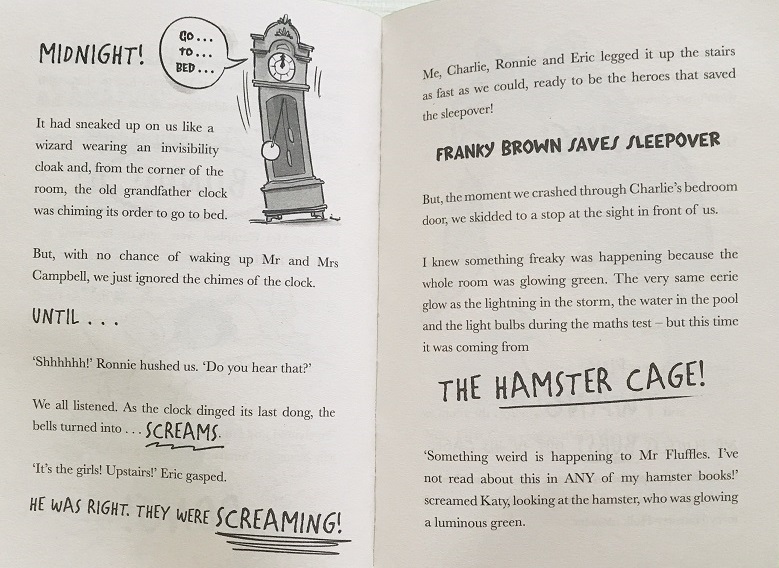 MIDNIGHT!
GO...
TO...
BED...
It had sneaked up on us like a
wizard wearing an invisibility
cloak and, from the corner of the
room, the old grandfather clock
was chiming its order to go to bed.
But, with no chance of waking up Mr and Mrs
Campbell, we just ignored the chimes of the clock.
UNTIL . . .
‘Shhhhhh!’ Ronnie hushed us. ‘Do you hear that?’
We all listened. As the clock dinged its last dong, the
bells turned into . . . SCREAMS.
‘It’s the girls! Upstairs!’ Eric gasped.
HE WAS RIGHT. THEY WERE SCREAMING!
Me, Charlie, Ronnie and Eric legged it up the stairs
as fast as we could, ready to be the heroes that saved
the sleepover!
FRANKY BROWN SAVES SLEEPOVER
But, the moment we crashed through Charlie’s bedroom
door, we skidded to a stop at the sight in front of us.
I knew something freaky was happening because the
whole room was glowing green. The very same eerie
glow as the lightning in the storm, the water in the pool
and the light bulbs during the maths test – but this time
it was coming from
THE HAMSTER CAGE!
‘Something weird is happening to Mr Fluffles. I’ve
not read about this in ANY of my hamster books!’
screamed Katy, looking at the hamster, who was glowing
a luminous green.